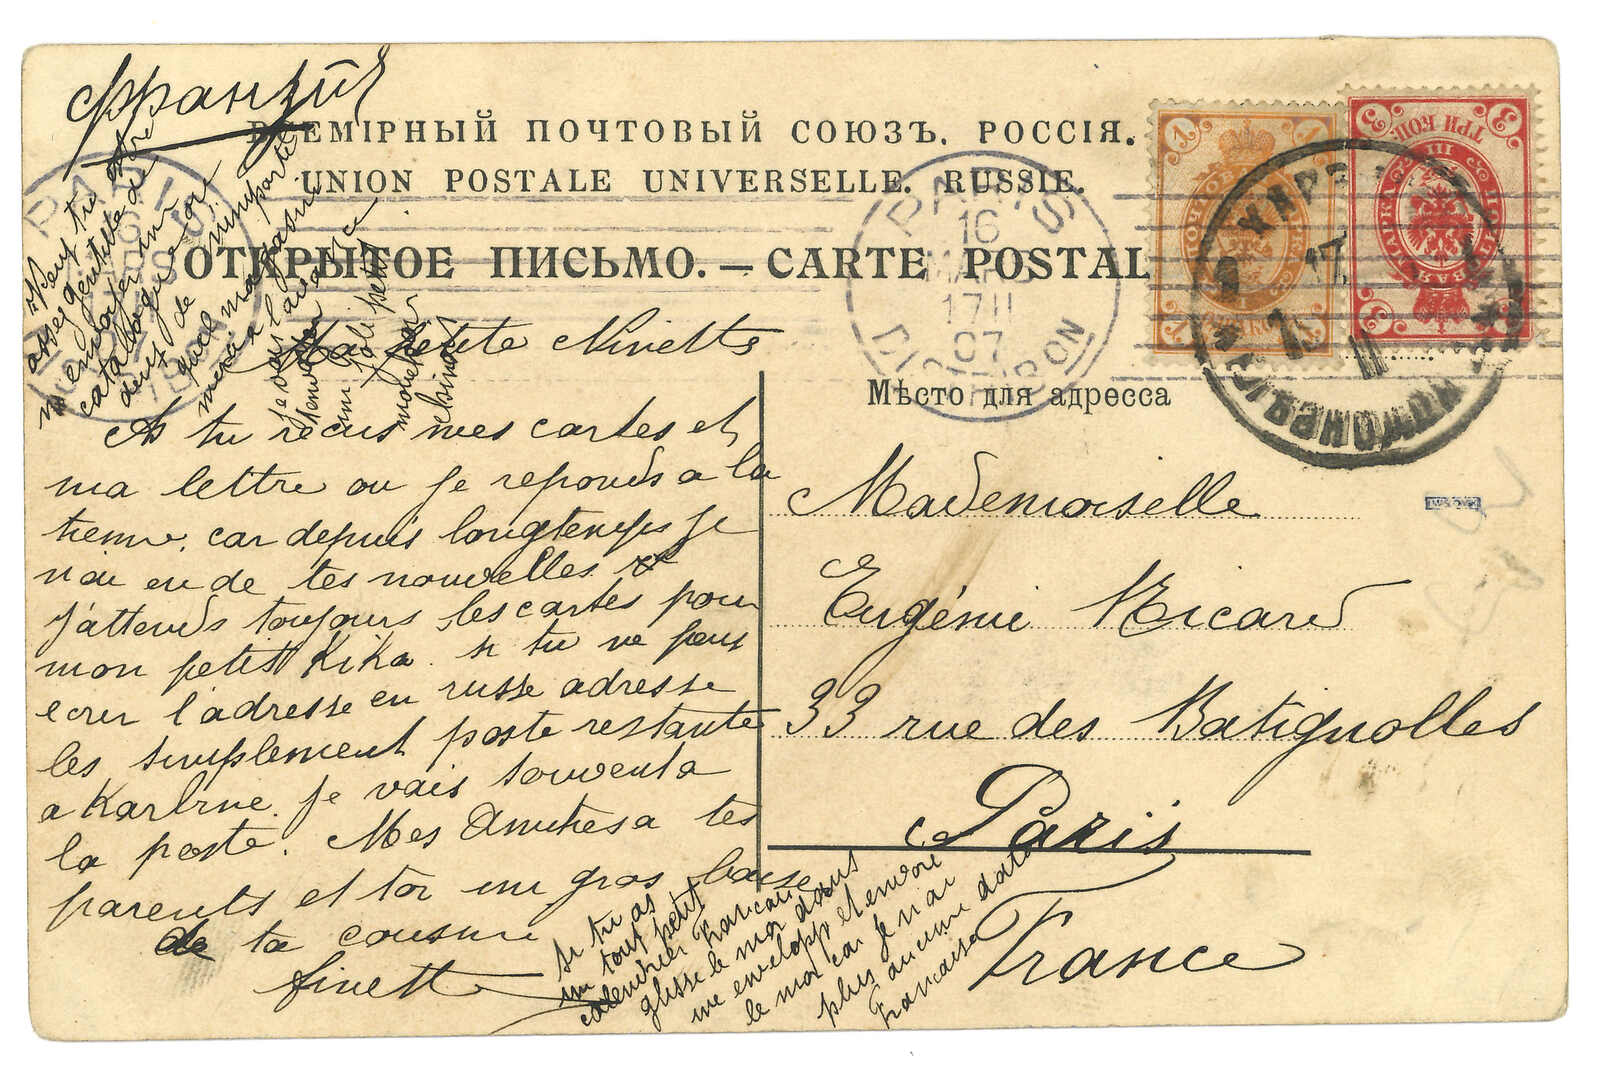 Францiя
ВСЕМІРНЫЙ ПОЧТОВЫЙ СОЮЗЪ. РОССІЯ.
UNION POSTALE UNIVERSELLE. RUSSIE.
ОТКРЫТОЕ ПИСЬМО. — CARTE POSTALE
Мѣсто для адресса
1 1
1 1
3 3
ТРИ КОП.
PARIS
16
MARS
17 11
07
DISTRIBUTION
PARIS
17
11
Ma petite Ninette
As tu recus mes cartes et
ma lettre ou je reponds a la
tienne, car depuis longtemps je
n'ai eu de tes nouvelles
j'attends toujours les cartes pour
mon petit Kika. si tu ne peux
ecrir l'adresse en russe adresse
les simplement poste restante
a Karbine. je vais souvent a
la poste. Mes Amities a tes
parents et toi un gros baise
de ta cousine
finett
peut tu
asseq gentille de
m'envoyer un
catalogue
deux de
quel magasin
merci a l'avance
je vais
un joli petit
mouchoir
chinois
Si tu as
un tout petit
calendrier francais
glisse le moi dans
une envelopp et envoie
le moi car je n'ai
plus aucune data
francaise
Mademoiselle
Eugénie Ricard
33 rue des Batignolles
Paris
France